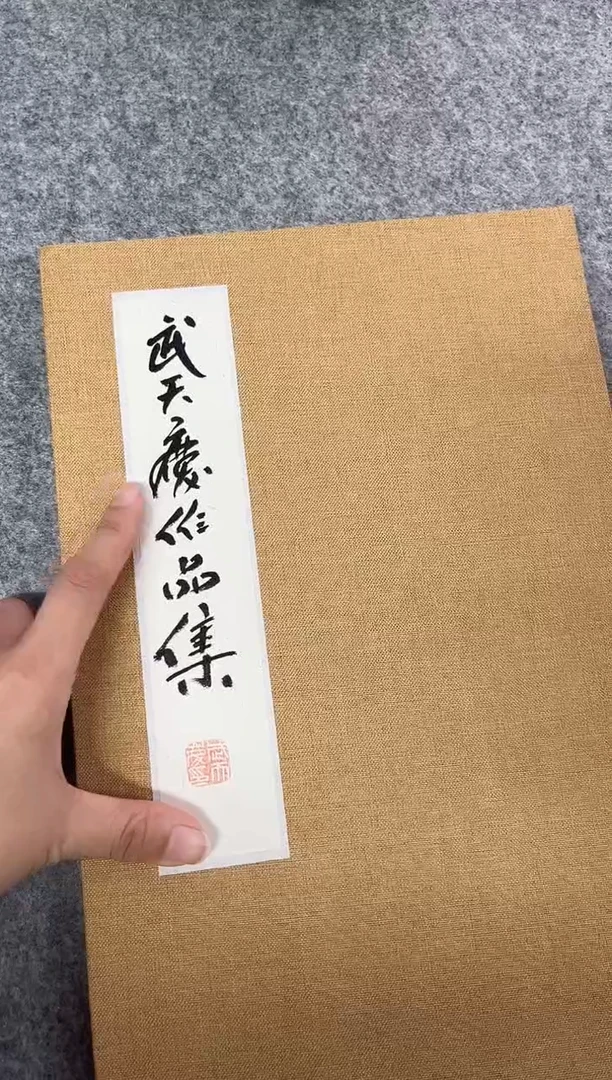 武天慶作品集